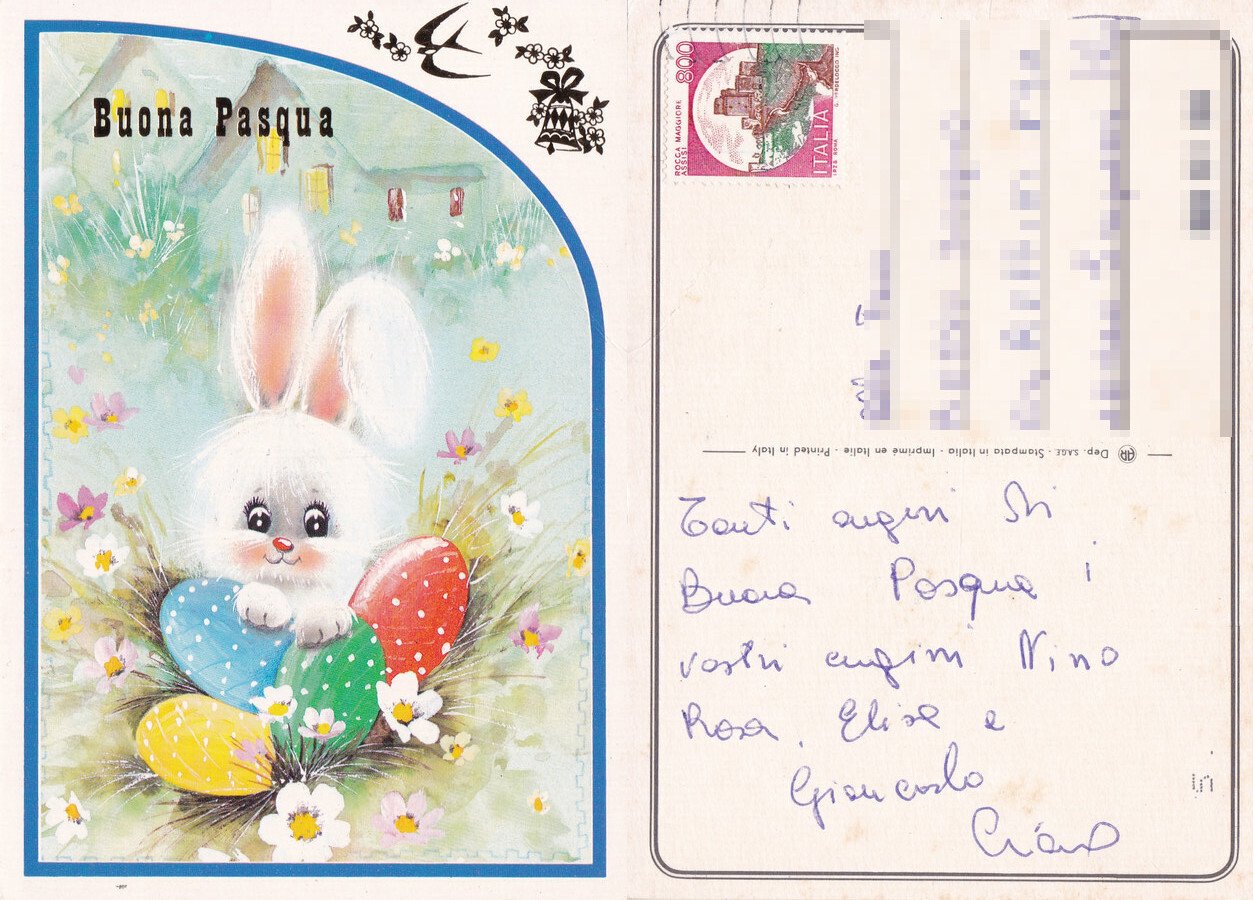 Buona Pasqua
800
ROCCA MAGGIORE
ASSISI
ITALIA
I.P.Z.S. ROMA
Dep. S.A.G.E. - Stampata in Italia - Imprimé en Italie - Printed in Italy
Tanti auguri di
Buona Pasqua i
vostri cugini Nino
Rosa, Elisa e
Giancarlo
Ciao